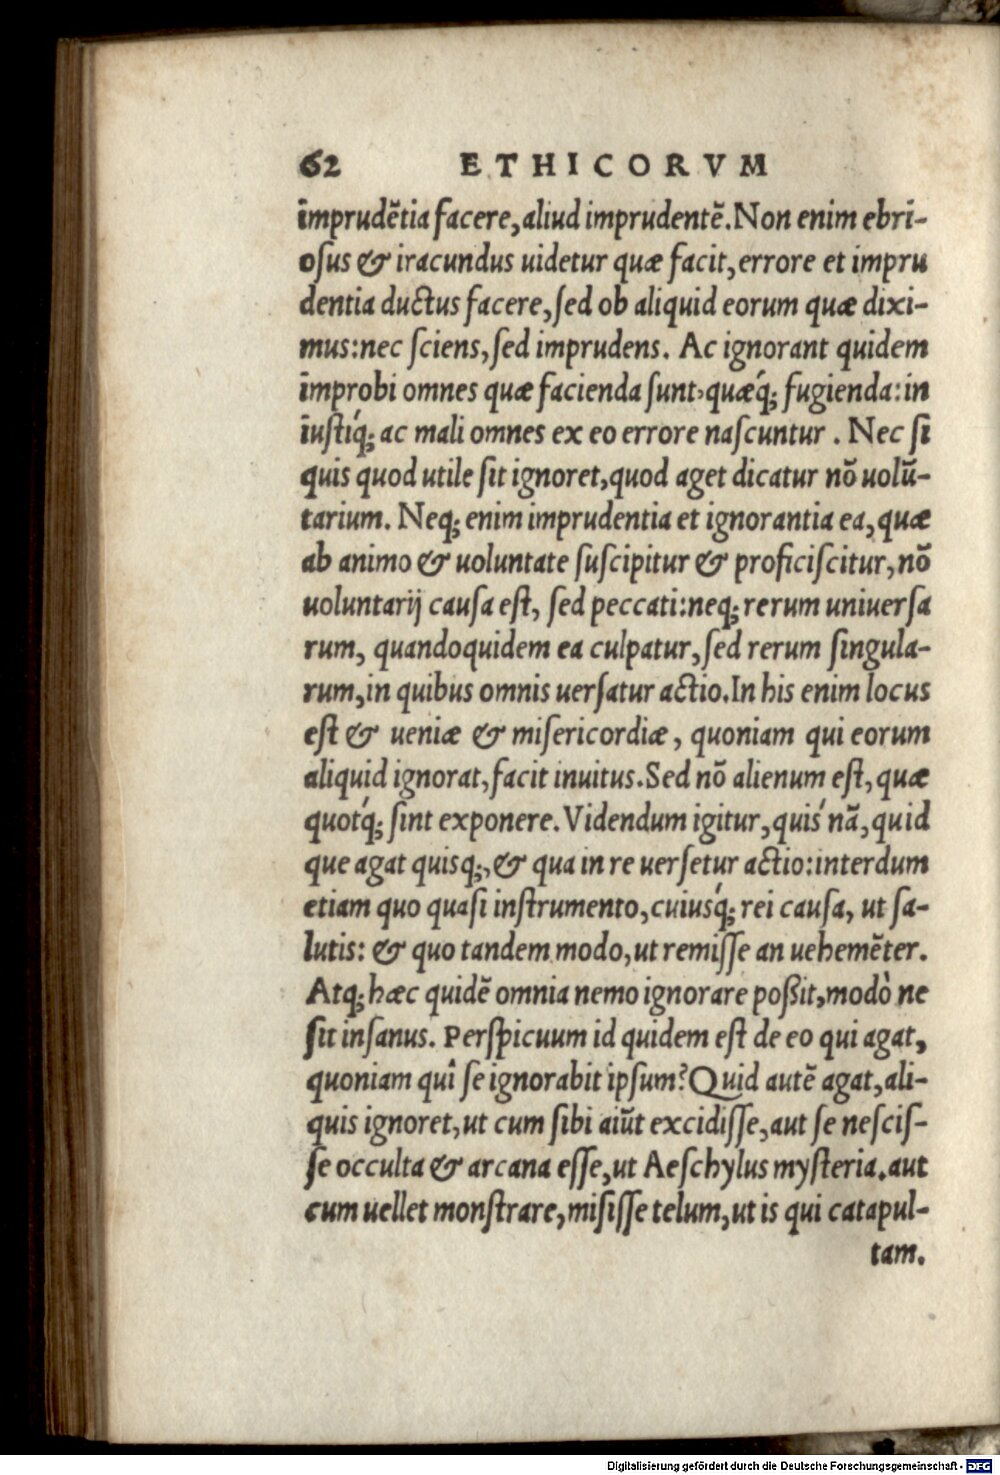 62 ETHICORVM
imprudẽtia facere, aliud imprudentẽ. Non enim ebri-
oſus & iracundus uidetur quæ facit, errore et impru
dentia ductus facere, ſed ob aliquid eorum quæ dixi-
mus: nec ſciens, ſed imprudens. Ac ignorant quidem
improbi omnes quæ facienda ſunt, quæq́; fugienda: in
iuſtiq́; ac mali omnes ex eo errore naſcuntur. Nec ſi
quis quod utile ſit ignoret, quod aget dicatur nõ uolũ-
tarium. Neq; enim imprudentia et ignorantia ea, quæ
ab animo & uoluntate ſuſcipitur & proficiſcitur, nõ
uoluntarij cauſa eſt, ſed peccati: neq; rerum uniuerſa
rum, quandoquidem ea culpatur, ſed rerum ſingula-
rum, in quibus omnis uerſatur actio. In his enim locus
eſt & ueniæ & miſericordiæ, quoniam qui eorum
aliquid ignorat, facit inuitus. Sed nõ alienum eſt, quæ
quotq́; ſint exponere. Videndum igitur, quis´ nã, quid
que agat quisq;, & qua in re uerſetur actio: interdum
etiam quo quaſi inſtrumento, cuiusq́; rei cauſa, ut ſa-
lutis: & quo tandem modo, ut remiſſe an uehemẽter.
Atq; hæc quidẽ omnia nemo ignorare poßit, modò ne
ſit inſanus. Perſpicuum id quidem eſt de eo qui agat,
quoniam quî ſe ignorabit ipſum? Quid autẽ agat, ali-
quis ignoret, ut cum ſibi aiũt excidiſſe, aut ſe neſciſ-
ſe occulta & arcana eſſe, ut Aeſchylus myſteria. aut
cum uellet monſtrare, miſiſſe telum, ut is qui catapul-
tam.
Digitalisierung gefördert durch die Deutsche Forschungsgemeinschaft - DFG